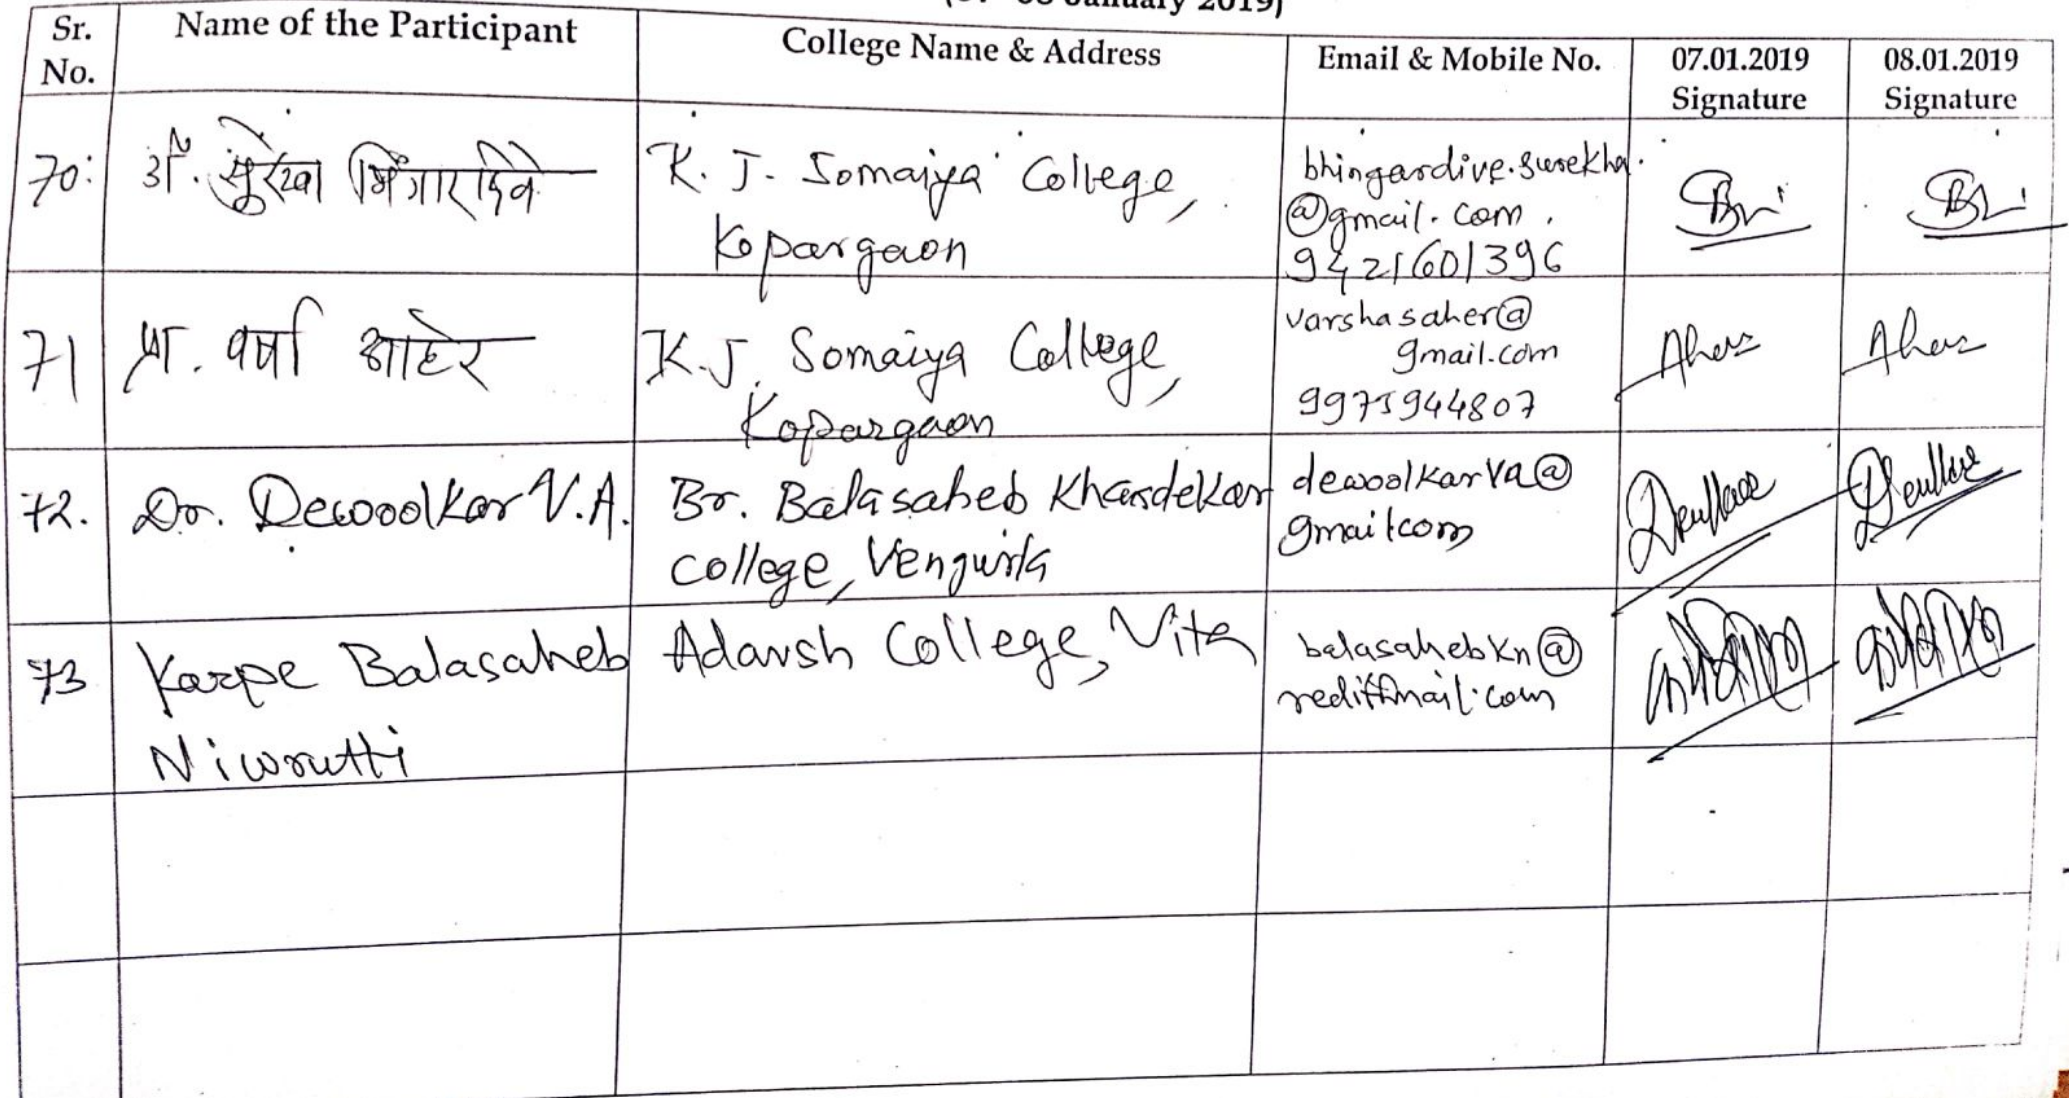 January 2019)
Sr. No.
Name of the Participant
College Name & Address
Email & Mobile No.
07.01.2019
Signature
08.01.2019
Signature
70.
डॉ. सुरेखा भिंगारदिवे
K. J. Somaiya College,
Kopargaon
bhingardive.surekha.
@gmail.com.
9421601396
71
प्रा. वर्षा आहेर
K.J. Somaiya College,
Kopargaon
varshasaher@
gmail.com
9975944807
Aher
Aher
72.
Dr. Dewoolkar V.A.
Br. Balasaheb Khardekar
College, Vengurla
dewoolkarva@
gmailcom
73
Karpe Balasaheb
Niwrutti
Adarsh College, Vita
balasahebkn@
rediffmail.com